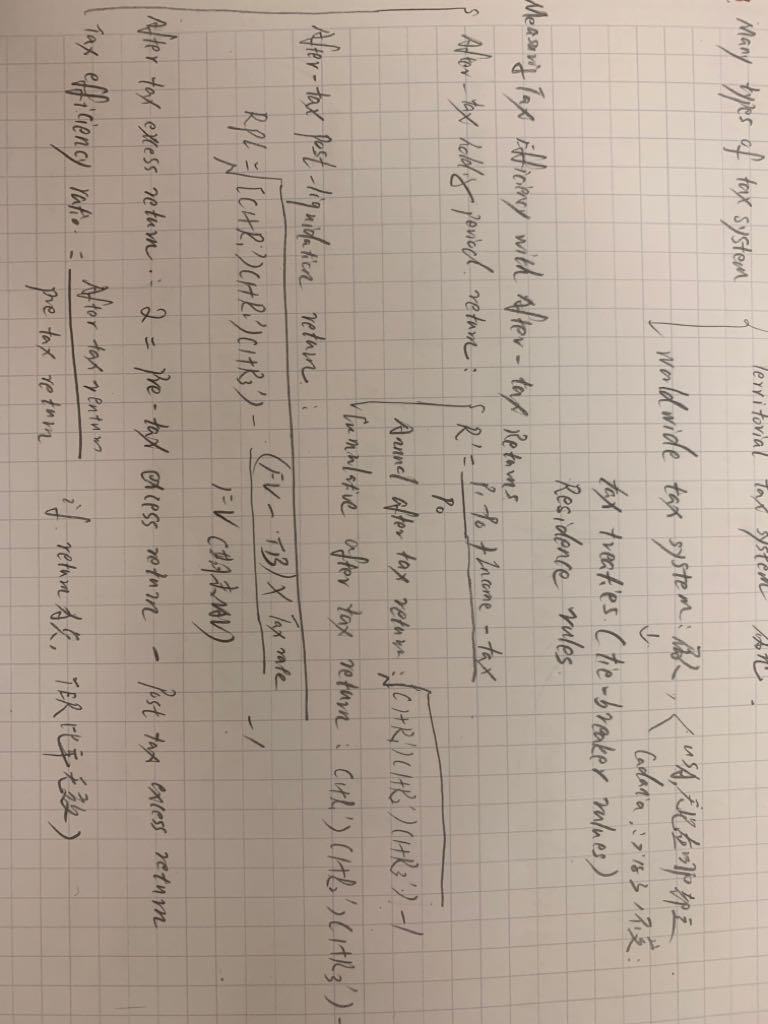 Many types of tax system
Territorial tax system
Worldwide tax system:
USA,
Cadana
tax treaties (tie-breaker rules)
Residence rules
Measurig Tax Efficiency with After-tax Returns
After-tax holdig period return: R' = P₁-P₀ + Income - tax
P₀
Annul after tax return: ᴺ√(1+R₁')(1+R₂')(1+R₃') -1
Cumulative after tax return: (1+R₁')(1+R₂')(1+R₃') -
After-tax post-liquidation return:
RPL = ᴺ√[(1+R₁')(1+R₂')(1+R₃') - (FV - TB) × Tax rate -1
FV (期末MV)
After tax excess return: 2 = Pre-tax excess return - Post tax excess return
Tax efficiency ratio = After tax return
pre tax return
if return 为负, TER 比率无效)